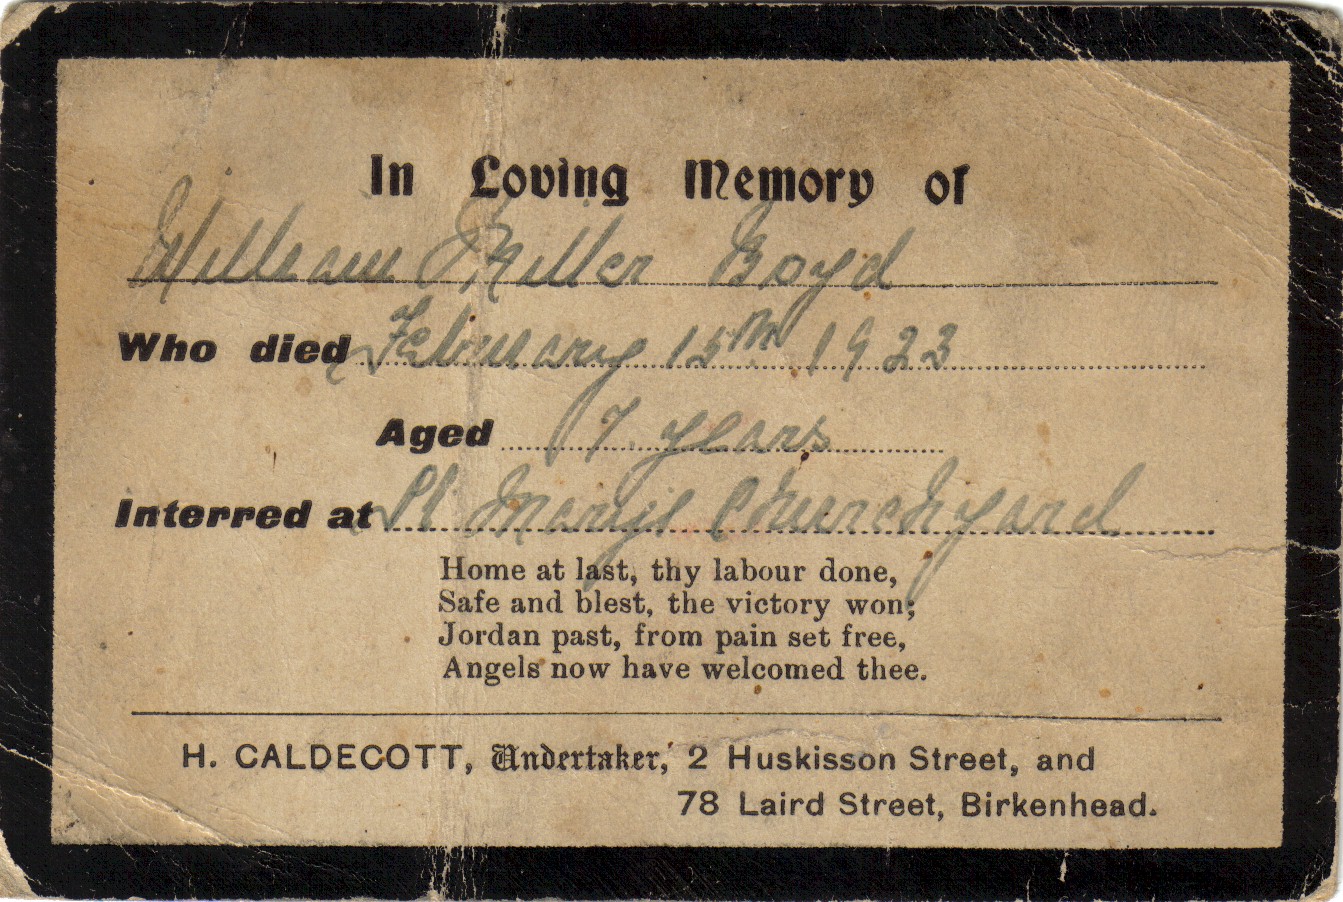 In Loving Memory of
William Miller Boyd
Who died February 15th 1923
Aged 7 years
Interred at St Marys Churchyard
Home at last, thy labour done,
Safe and blest, the victory won;
Jordan past, from pain set free,
Angels now have welcomed thee.
H. CALDECOTT, Undertaker, 2 Huskisson Street, and
78 Laird Street, Birkenhead.